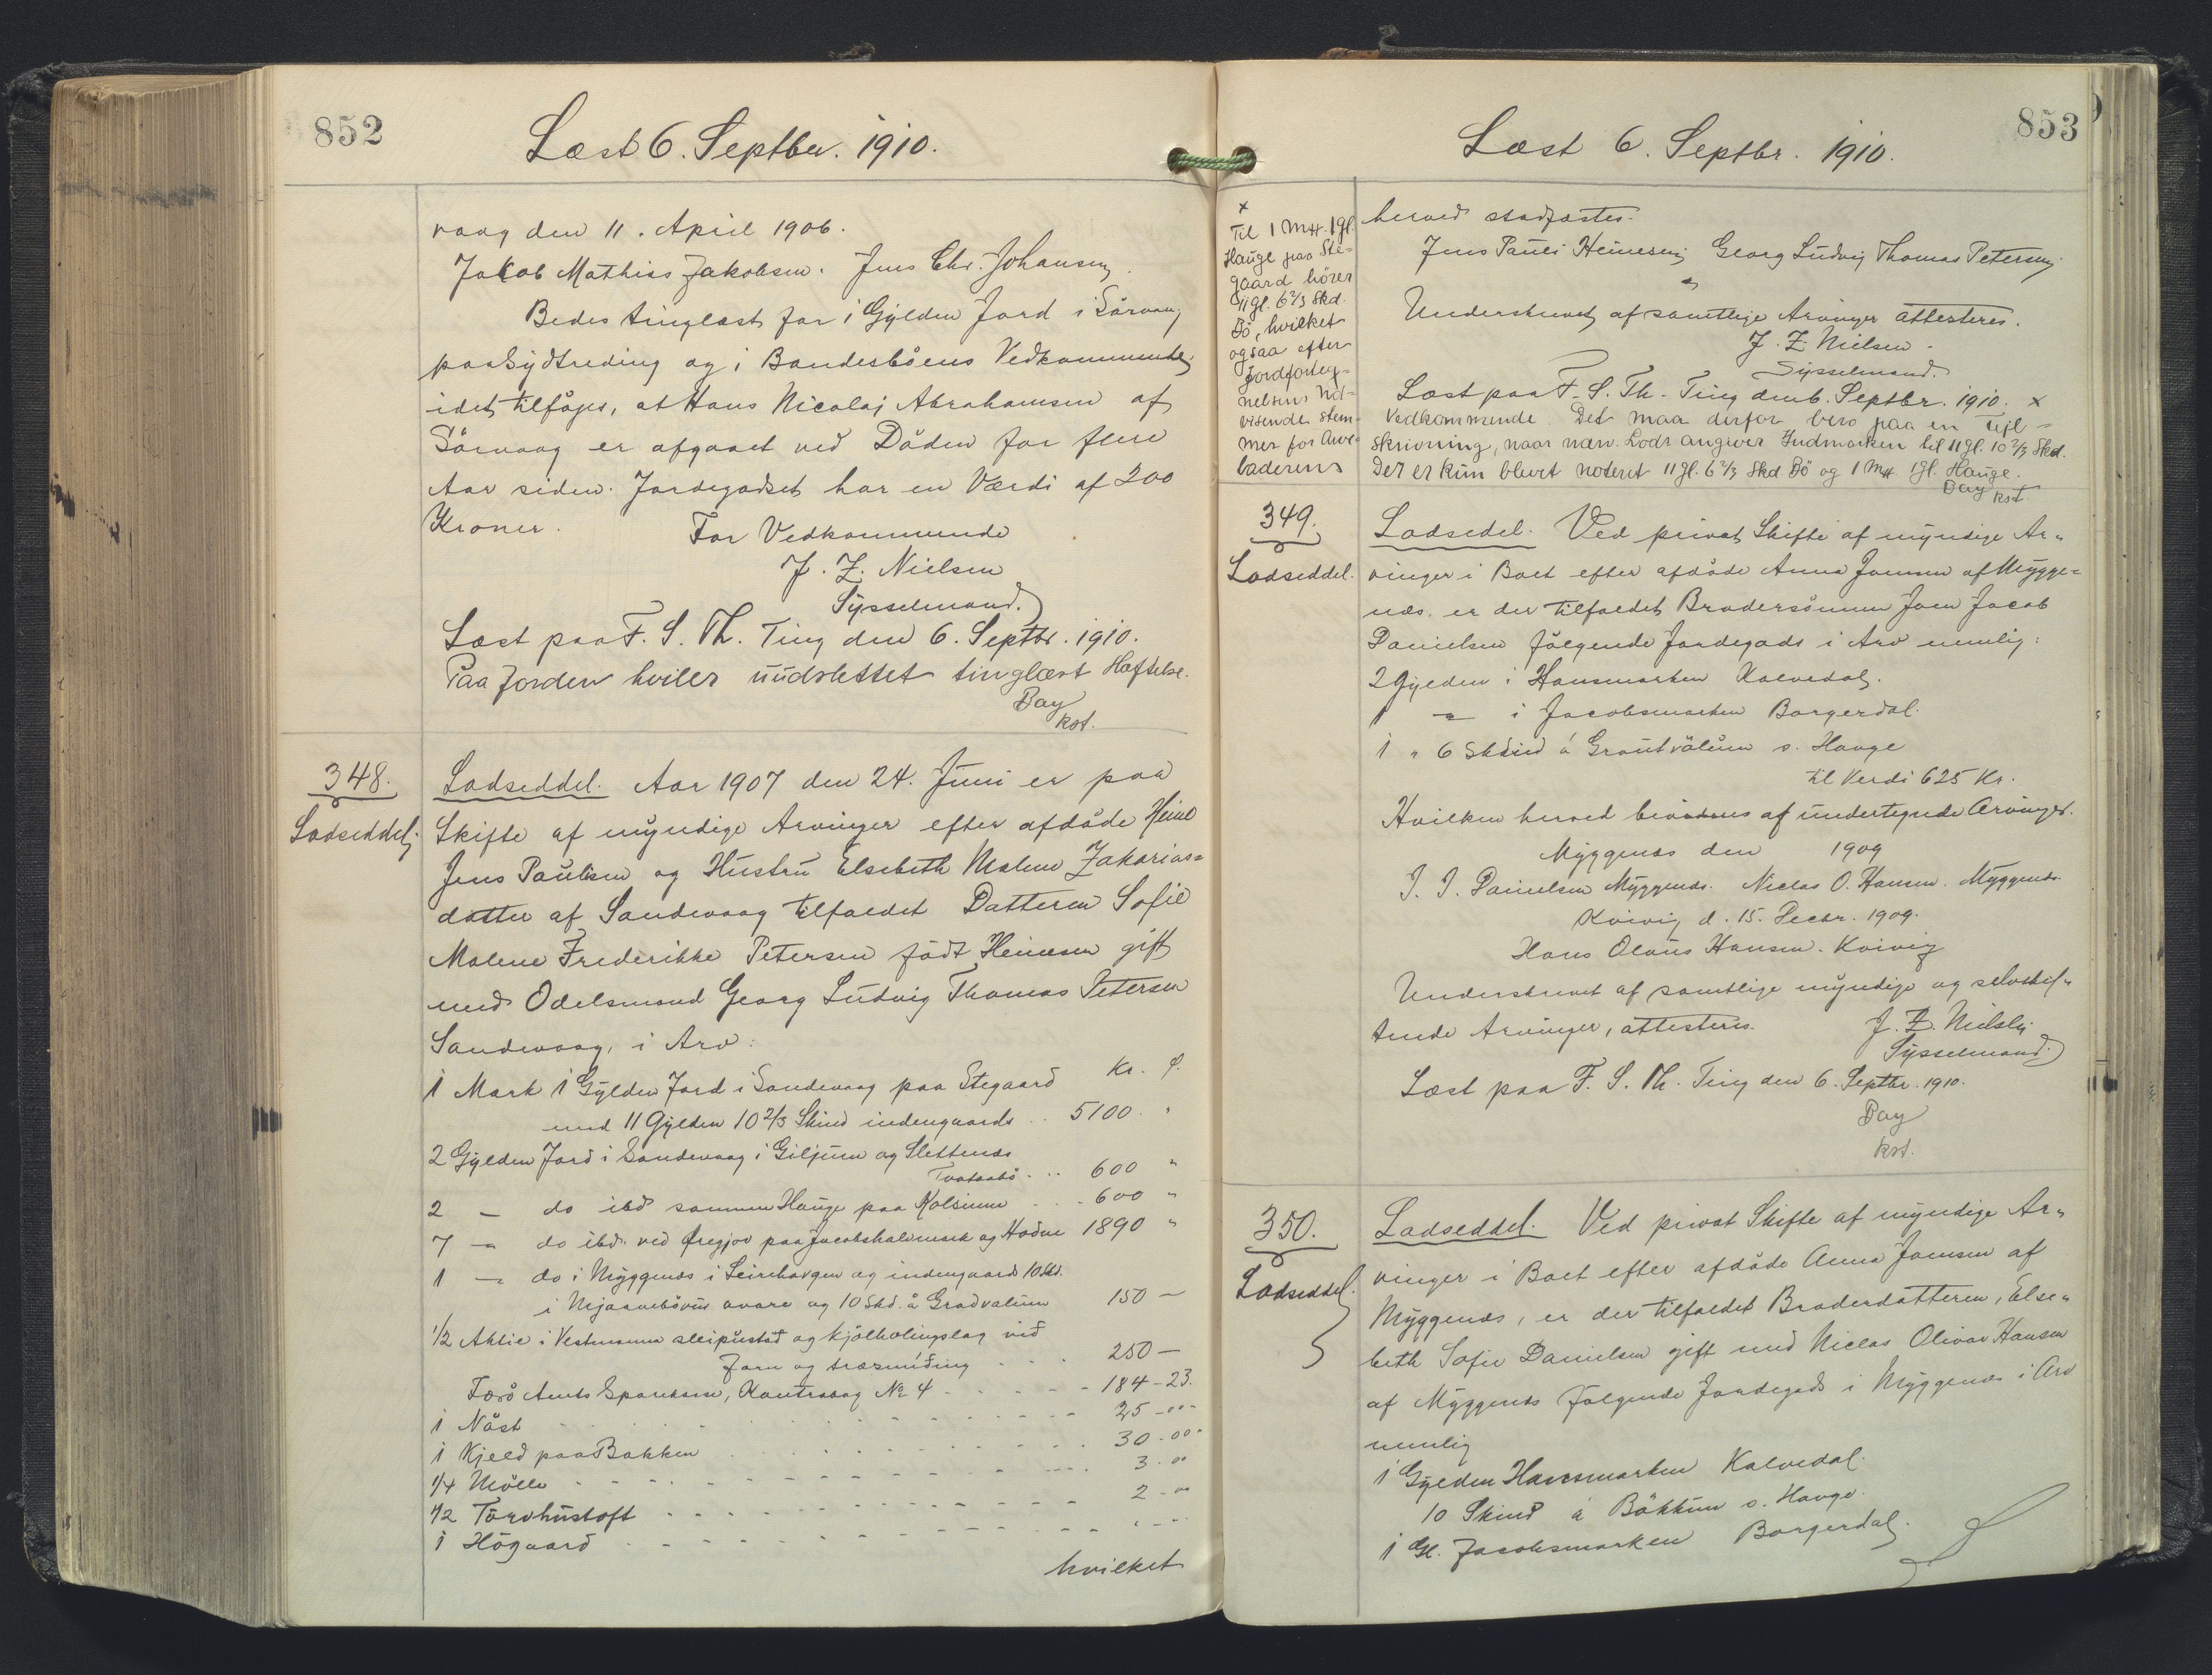 852
Læst 6. Septber. 1910.
vaag den 11. April 1906.
Jakob Mathias Jakobsen. Jens Chr. Johansen.
Bedes tinglæst for 1 Gylden Jord i Sörvaag
paa Sydtreding og i Bondesböens Vedkommende,
idet tilföjes, at Hans Nicolaj Abrahamsen af
Sörvaag er afgaaet ved Döden for flere
Aar siden. Jordegodset har en Værdi af 200
Kroner. For Vedkommende
J. Z. Nielsen
Sysselmand.
Læst paa F. S. Th. Ting den 6. Septbr. 1910.
Paa Jorden hviler uudslettet tinglæst Hæftelse.
Bay
kst.
348.
Lodseddel.
Lodseddel. Aar 1907 den 24. Juni er paa
Skifte af myndige Arvinger efter afdöde Heine
Jens Paulisen og Hustru Elsebeth Malene Zakarias=
datter af Sandevaag tilfaldet Datteren Sofie
Malene Frederikke Petersen födt Heinesen gift
med Odelsmand Georg Ludvig Thomas Petersen
Sandevaag, i Arv:
1 Mark 1 Gylden Jord i Sandevaag paa Stegaard Kr. Ø.
med 11 Gylden 10 2/3 Skind indengaards .. 5100. "
2 Gylden Jord i Sandevaag i Giljum og Slettenæs
Tvataabö ... 600 "
2 — do ibd sammen Hauge paa Kalsinum ... 600 "
7 — do ibd. ved Øregjov paa Jacobshalvmark og Hodne 1890 "
1 — do i Myggenæs i Leirehavgen og indengaards 10 Skd.
i Mjaavebövin ovare og 10 Skd. á Gradvalinum 150 —
1/2 Aktie i Vestmanna sleipustød og kjölhalingslag vid
Jarn og træsmíding .... 250 —
Færö Amts Sparekasse, Kontrabog No 4 ..... 184 - 23.
1 Nöst ... 25 - 00 -
1 Kjeld paa Bakken ... 30 - 00 -
1/4 Mölle ... 3 - 00
1/2 Törvhustoft ... 2 - 00
1 Högaard ... " - "
hvilket
853
Læst 6. Septbr. 1910.
x
Til 1 Mk. 1 gl.
Hauge paa Ste=
gaard hörer
11 gl. 6 2/3 Skd.
Bö, hvilket
ogsaa efter
Jordforteg=
nelsens Ud=
visende stem=
mer for Arve=
laderens
herved stadfæstes.
Jens Pauli Heinesen, Georg Ludvig Thomas Petersen,
Underskrevet af samtlige Arvinger attesteres.
J. Z. Nielsen.
Sysselmand.
Læst paa F. S. Th. Ting den 6. Septbr. 1910. x
Vedkommende. Det maa derfor bero paa en Fejl=
skrivning, naar nærv. Lods angiver Indmarken til 11 gl. 10 2/3 Skd.
Der er kun blevet noteret 11 gl. 6 2/3 Skd Bö og 1 Mk 1 gl. Hauge.
Bay kst
349.
Lodseddel.
Lodsedel. Ved privat Skifte af myndige Ar=
vinger i Boet efter afdöde Anna Joensen af Mygge=
næs. er der tilfaldet Brodersönnen Joen Jacob
Danielsen fölgende Jordegods i Arv nemlig:
2 Gylden i Hansmarken Kalvedal.
1 — i Jacobsmarken Borgerdal.
1 " 6 Skind á Grautvölum s. Hauge
til Verdi 625 Kr.
Hvilken herved bevidnes af undertegnede Arvinger.
Myggenæs den 1909
J. J. Danielsen Myggenæs. Niclas O. Hansen. Myggenæs.
Kvivig d. 15. Decbr. 1909.
Hans Olaus Hansen. Kvivig
Underskrevet af samtlige myndige og selvskif=
tende Arvinger, attesteres. J. Z. Nielsen
Sysselmand.
Læst paa F. S. Th. Ting den 6. Septbr. 1910.
Bay
kst.
350.
Lodseddel.
Lodseddel. Ved privat Skifte af myndige Ar=
vinger i Boet efter afdöde Anna Joensen af
Myggenæs, er der tilfaldet Broderdatteren, Else=
beth Sofie Danielsen gift med Niclas Olivar Hansen
af Myggenæs fölgende Jordegods i Myggenæs i Arv
nemlig
1 Gylden Hansmarken Kalvedal.
10 Skind á Bökkum s. Hauge.
1 Gl. Jacobsmarken Borgerdal.